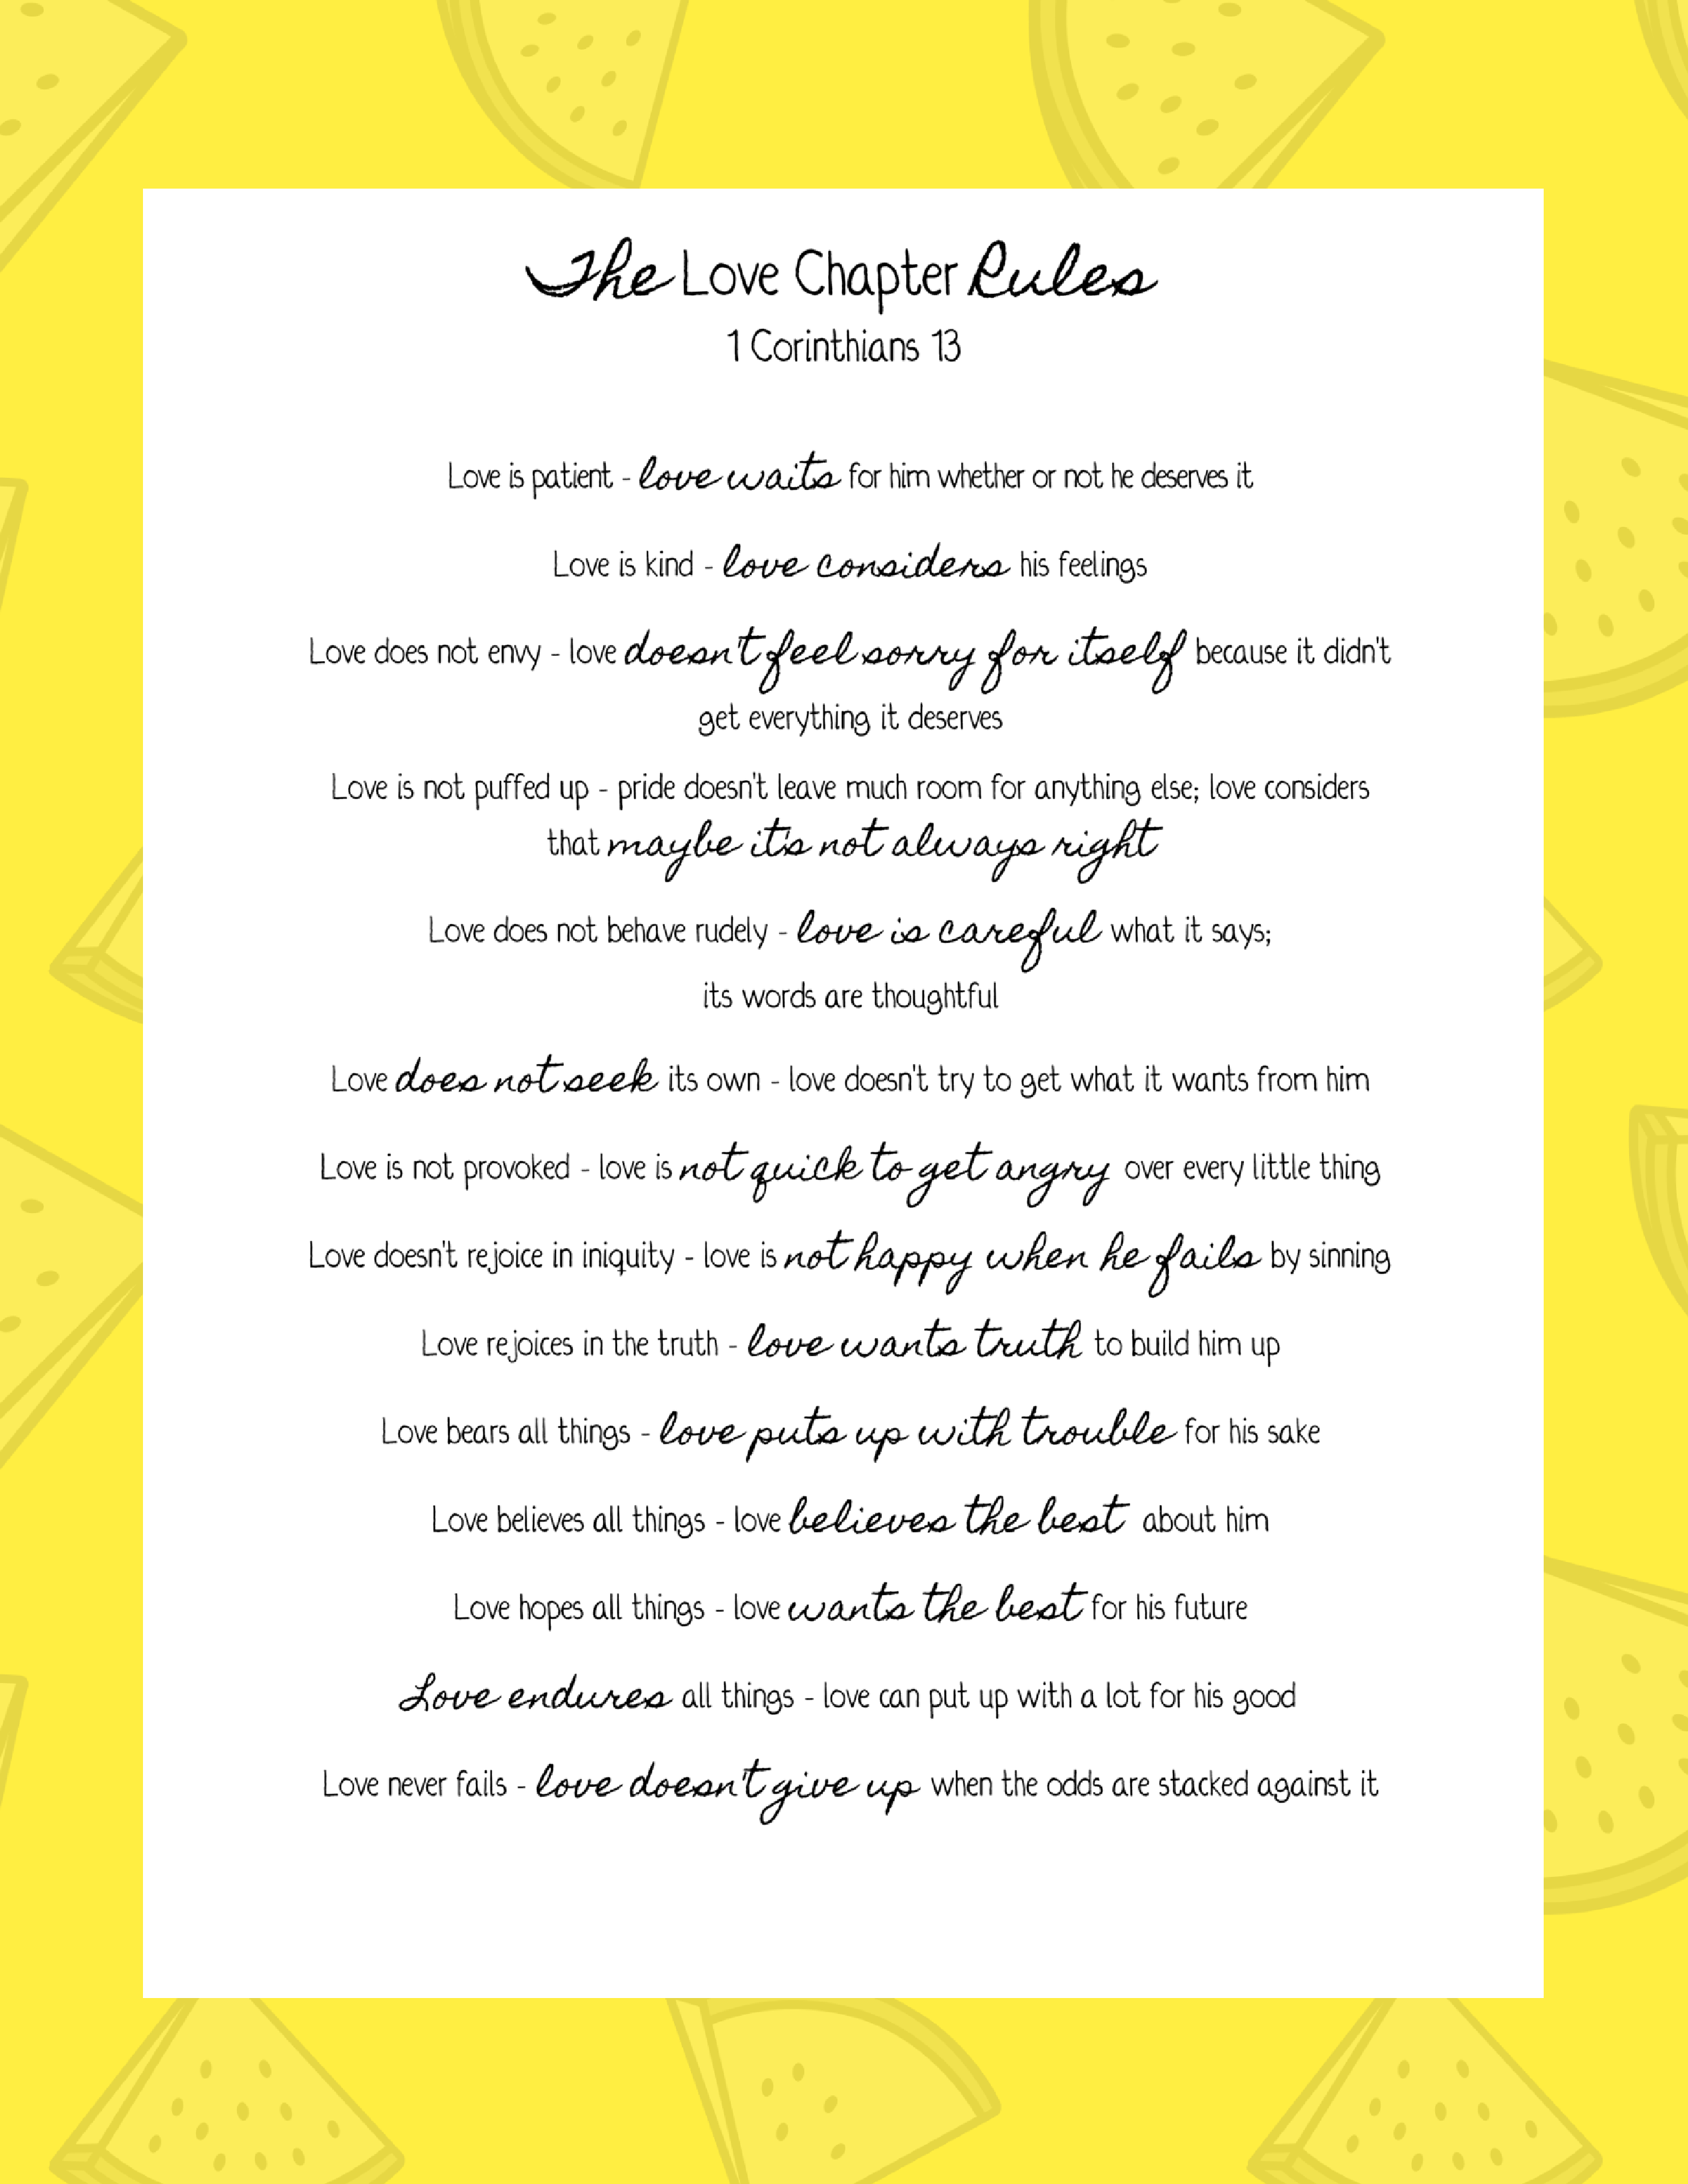 The Love Chapter Rules
1 Corinthians 13
Love is patient - love waits for him whether or not he deserves it
Love is kind - love considers his feelings
Love does not envy - love doesn't feel sorry for itself because it didn't
get everything it deserves
Love is not puffed up - pride doesn't leave much room for anything else; love considers
that maybe it's not always right
Love does not behave rudely - love is careful what it says;
its words are thoughtful
Love does not seek its own - love doesn't try to get what it wants from him
Love is not provoked - love is not quick to get angry over every little thing
Love doesn't rejoice in iniquity - love is not happy when he fails by sinning
Love rejoices in the truth - love wants truth to build him up
Love bears all things - love puts up with trouble for his sake
Love believes all things - love believes the best about him
Love hopes all things - love wants the best for his future
Love endures all things - love can put up with a lot for his good
Love never fails - love doesn't give up when the odds are stacked against it